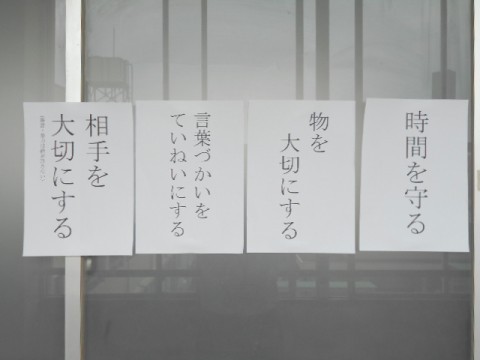 時間を守る
物を
大切にする
言葉づかいを
ていねいにする
相手を
大切にする